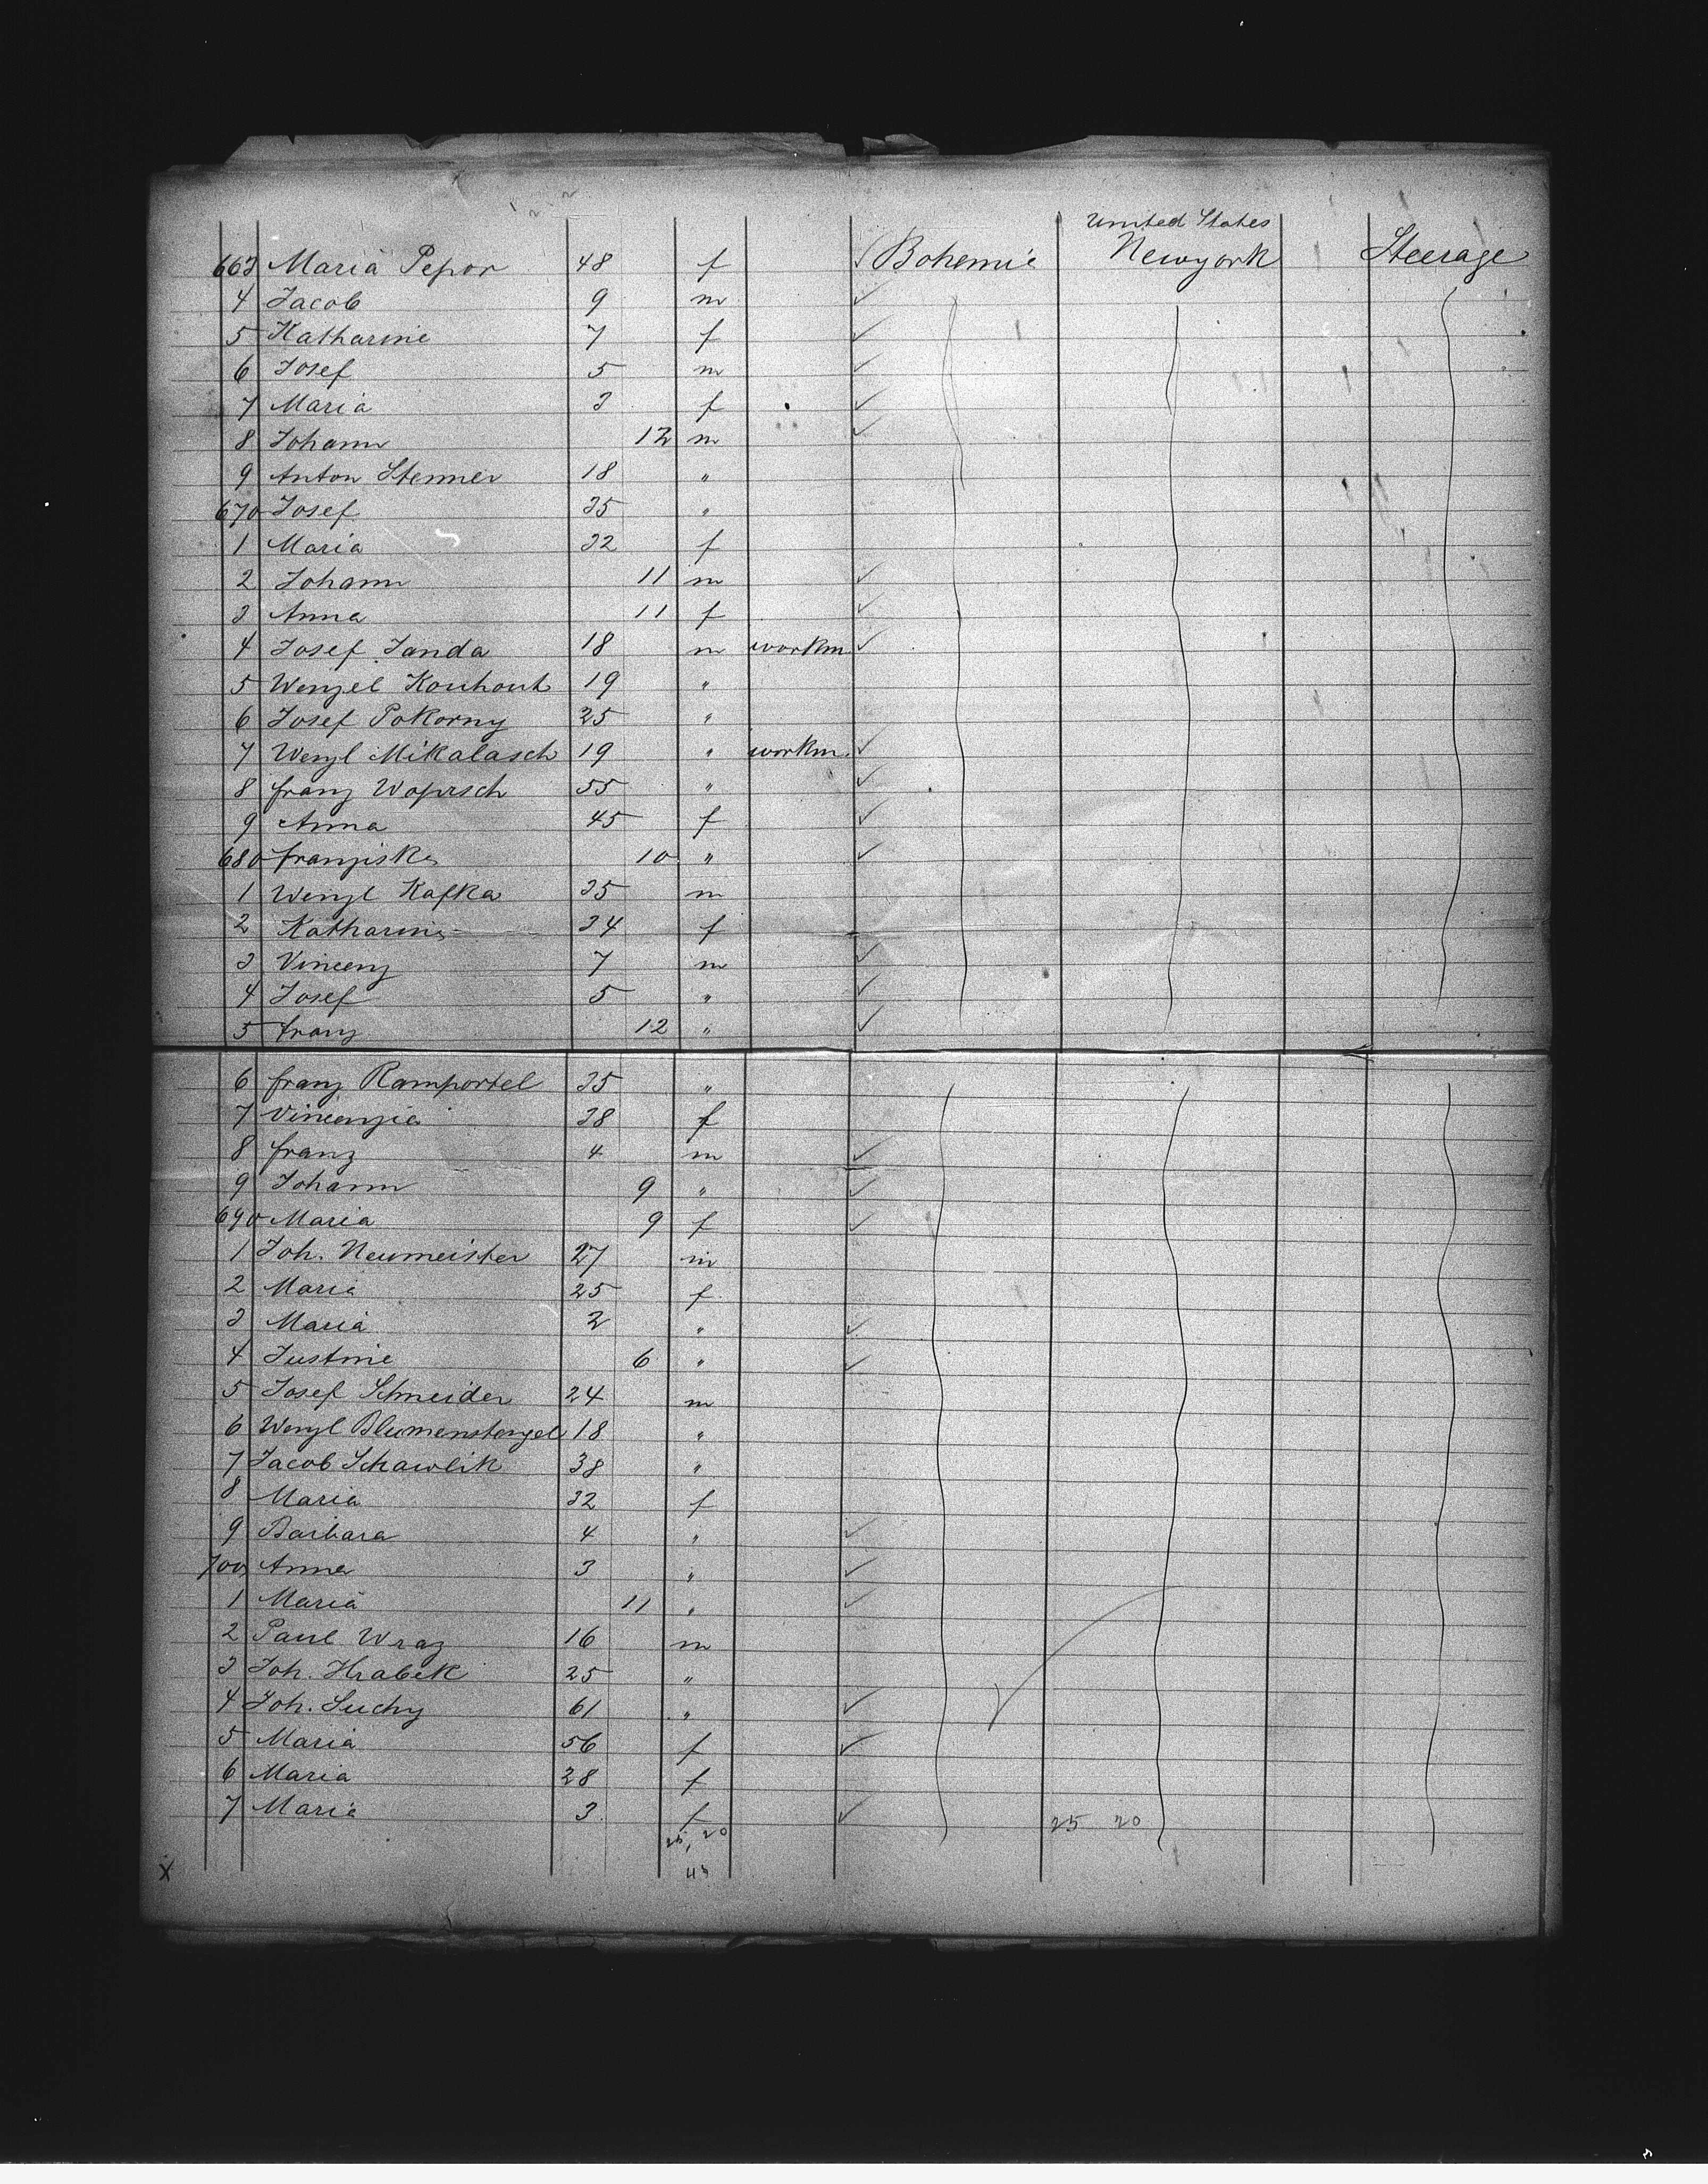 United States
663 Maria Pepor 48 f ✓ Bohemie Newyork Steerage
4 Jacob 9 m ✓
5 Katharine 7 f ✓
6 Josef 5 m ✓
7 Maria 3 f ✓
8 Johann 12 m ✓
9 Anton Stenner 18 "
670 Josef 35 "
1 Maria 32 f
2 Johann 11 m ✓
3 Anna 11 f ✓
4 Josef Janda 18 m workm ✓
5 Wenzel Kouhout 19 "
6 Josef Pokorny 25 "
7 Wenzl Mikalasch 19 " workm. ✓
8 franz Woprsch 55 " ✓
9 Anna 45 f ✓
680 franziska 10 " ✓
1 Wenzl Kafka 35 m
2 Katharine 34 f
3 Vincenz 7 m ✓
4 Josef 5 " ✓
5 franz 12 " ✓
6 franz Ramportel 35 "
7 Vincenzia 38 f
8 franz 4 m ✓
9 Johann 9 " ✓
690 Maria 9 f ✓
1 Joh. Neumeister 27 m
2 Maria 25 f
3 Maria 2 " ✓
4 Justine 6 " ✓
5 Josef Schneider 24 m
6 Wenzl Blumenstengel 18 "
7 Jacob Schawlik 38 "
8 Maria 32 f
9 Barbara 4 " ✓
700 Anna 3 " ✓
1 Maria 11 " ✓
2 Paul Wraz 16 m
3 Joh. Hrabek 25 "
4 Joh. Suchy 61 " ✓
5 Maria 56 f ✓
6 Maria 28 f
7 Maria 3 f ✓ 25 20
25, 20
X